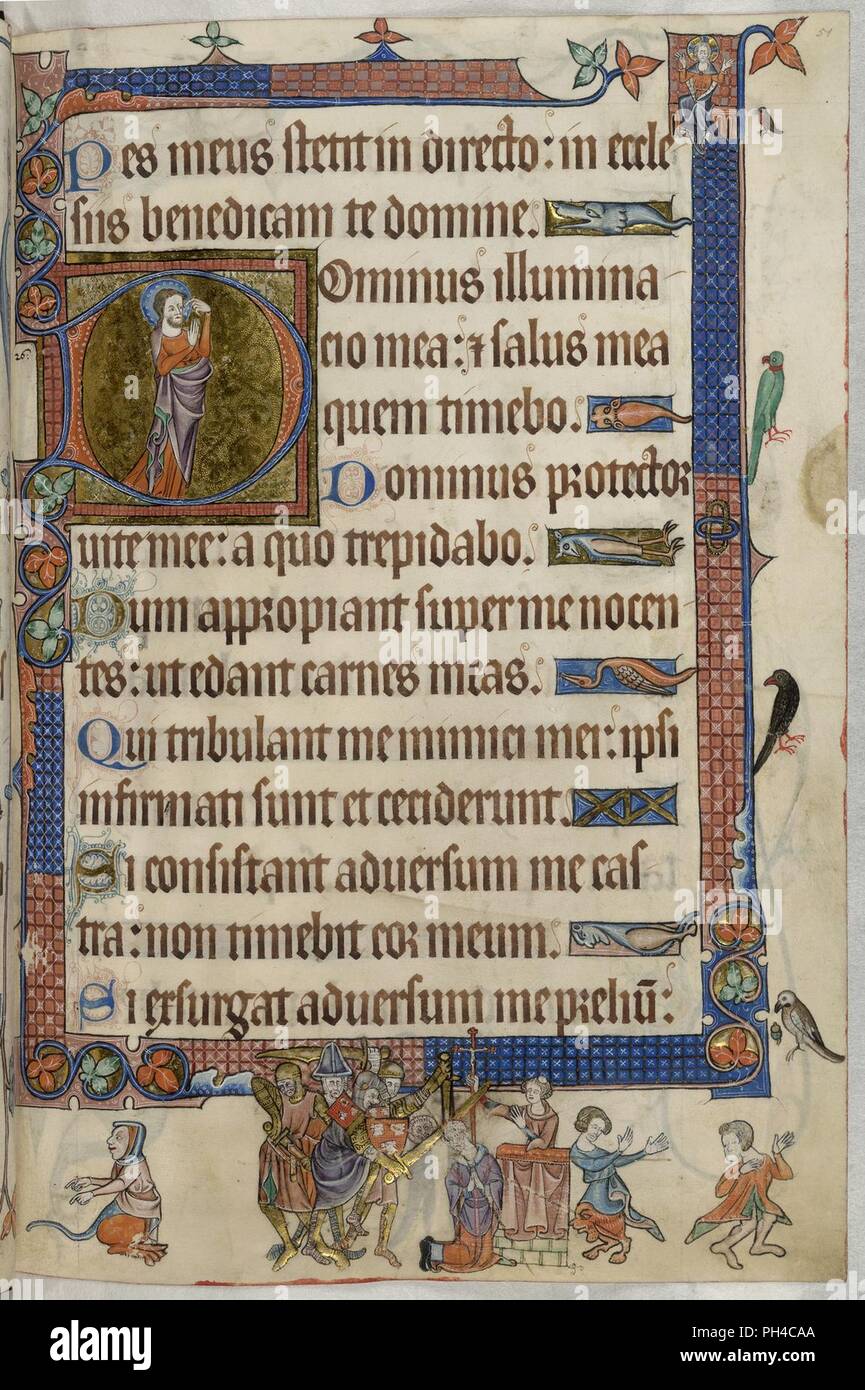 51
Pes meus stetit in directo: in eccle
siis benedicam te domine.
Dominus illumina
cio mea: ⁊ salus mea
26
quem timebo.
Dominus protector
uite mee: a quo trepidabo.
Dum appropiant super me nocen
tes: ut edant carnes meas.
Qui tribulant me inimici mei: ipsi
infirmati sunt et ceciderunt.
Si consistant aduersum me cas
tra: non timebit cor meum.
Si exsurgat aduersum me preliū:
alamy
Image ID: PH4CAA
www.alamy.com